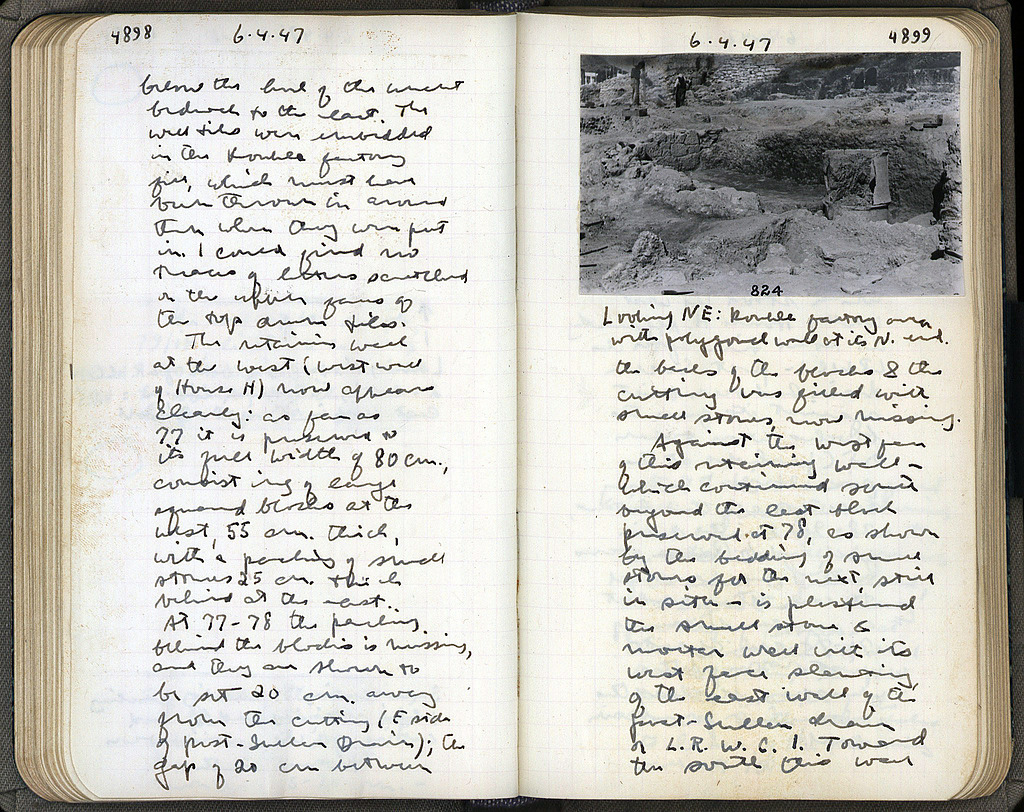 4898
6.4.47
below the level of the ancient
bedrock to the east. The
well tiles were imbedded
in the Marble factory
fill, which must have
been thrown in around
them when they were put
in. I could find no
traces of letters scratched
on the upper faces of
the top drum tiles.
The retaining wall
at the west (west wall
of House H) now appears
clearly: as far as
77 it is preserved to
its full width of 80 cm.,
consisting of large
squared blocks at the
west, 55 cm. thick,
with a packing of small
stones 25 cm. thick
behind at the east.
At 77-78 the packing
behind the blocks is missing,
and they are shown to
be set 20 cm. away
from the cutting (E side
of post-Sullan Drain); the
gap of 20 cm between
6.4.47
4899
824
Looking NE: Marble factory area
with polygonal wall at its N. end.
the backs of the blocks & the
cutting was filled with
small stones, now missing.
Against the west face
of this retaining wall -
which continued south
beyond the last block
preserved at 78, as shown
by the bedding of small
stones for the next still
in situ - is plastered
the small stone &
mortar wall with its
west face slanting,
of the east wall of the
post-Sullan drain
or L.R.W.C.1. Toward
the south this wall